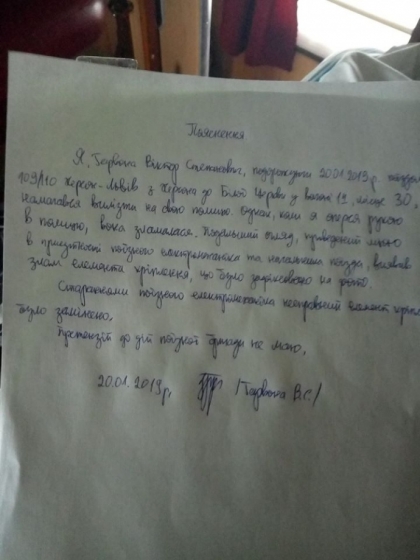 Пояснення
Я, Віктор Степанович, подорожуючи 20.01.2019 р. поїздом
109/110 Херсон-Львів з Херсона до Білої Церкви у вагоні 12, місце 30,
намагався вилізти на свою полицю. Однак, коли я оперся рукою
в полицю, вона зламалася. Подальший огляд, проведений мною
в присутності поїзного електромеханіка та начальника поїзда, виявив
злам елемента кріплення, що було зафіксовано на фото.
Стараннями поїзного електромеханіка несправний елемент
було замінено.
Претензій до дій поїзної бригади не маю.
20.01.2019 р. В.С./